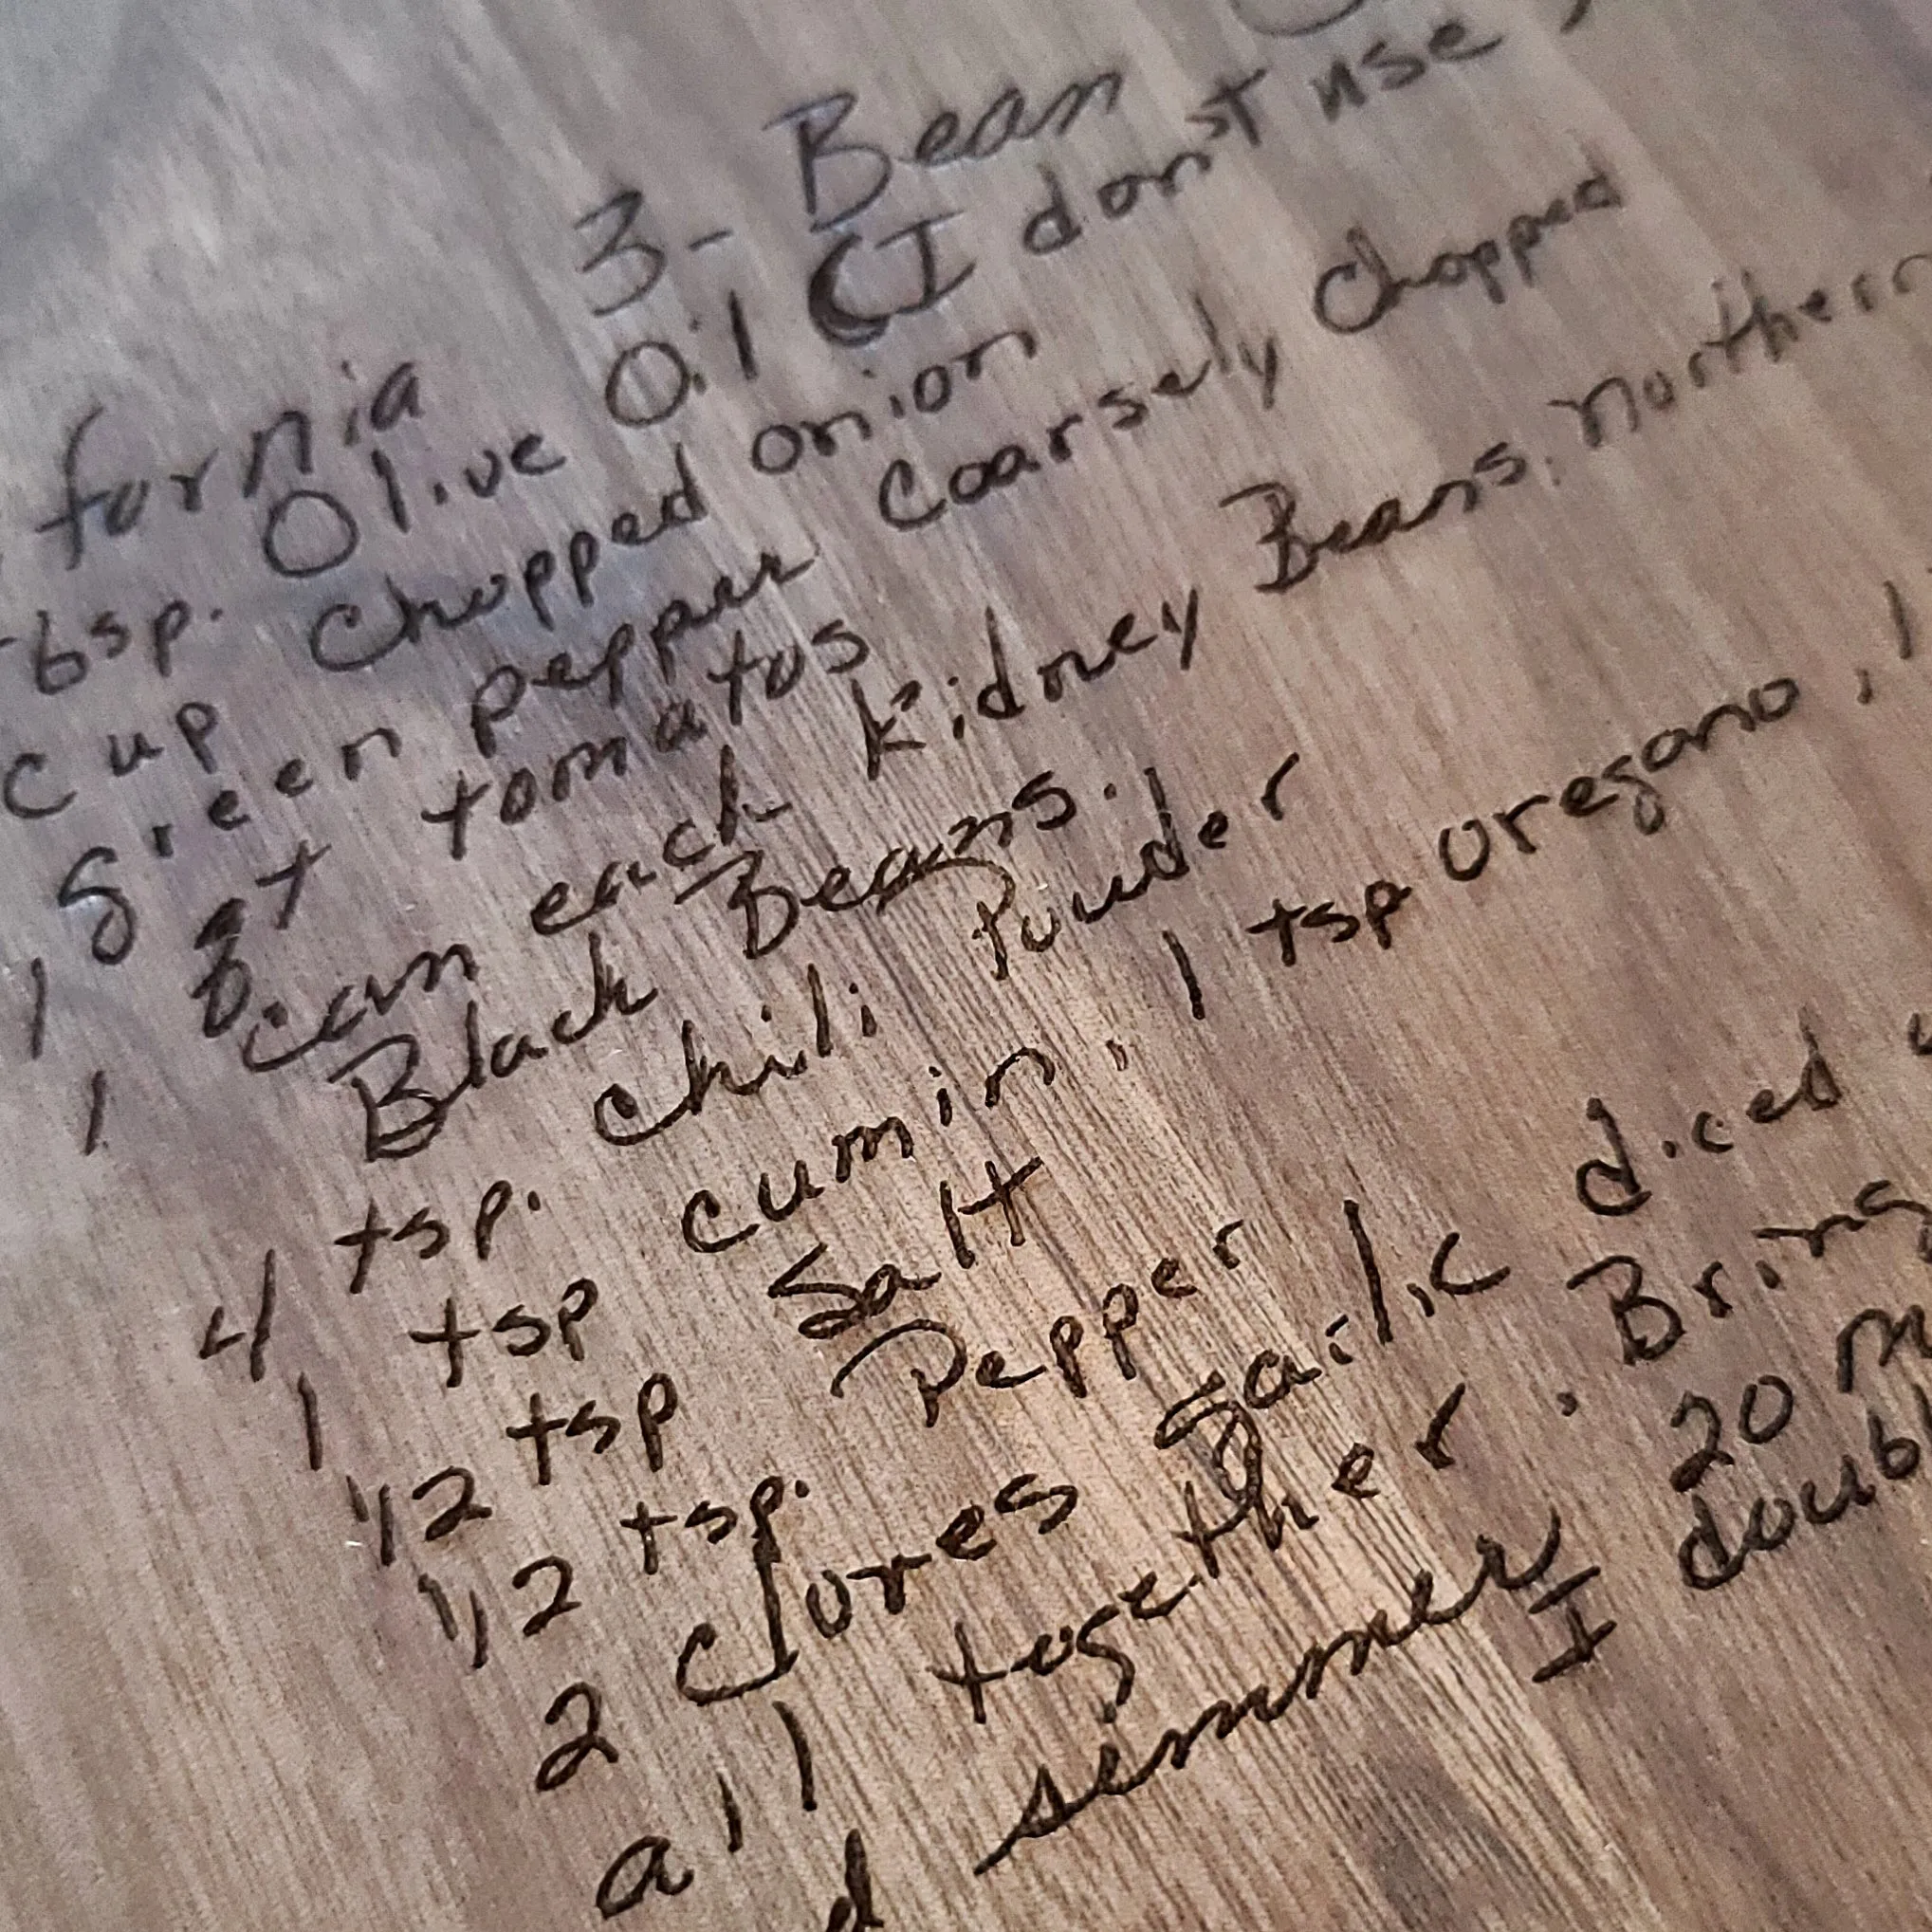 fornia 3- Bean
bsp. Olive Oil (I don't use
cup Chopped onion
1 green pepper Coarsely Chopped
1 qt tomatos
can each Kidney Beans, northern
Black Beans.
4 tsp. chili Powder
1 tsp cumin, 1 tsp oregano, 1
1/2 tsp Salt
1/2 tsp. Pepper
2 cloves garlic diced
all together. Bring
d simmer 20 m
I doubl